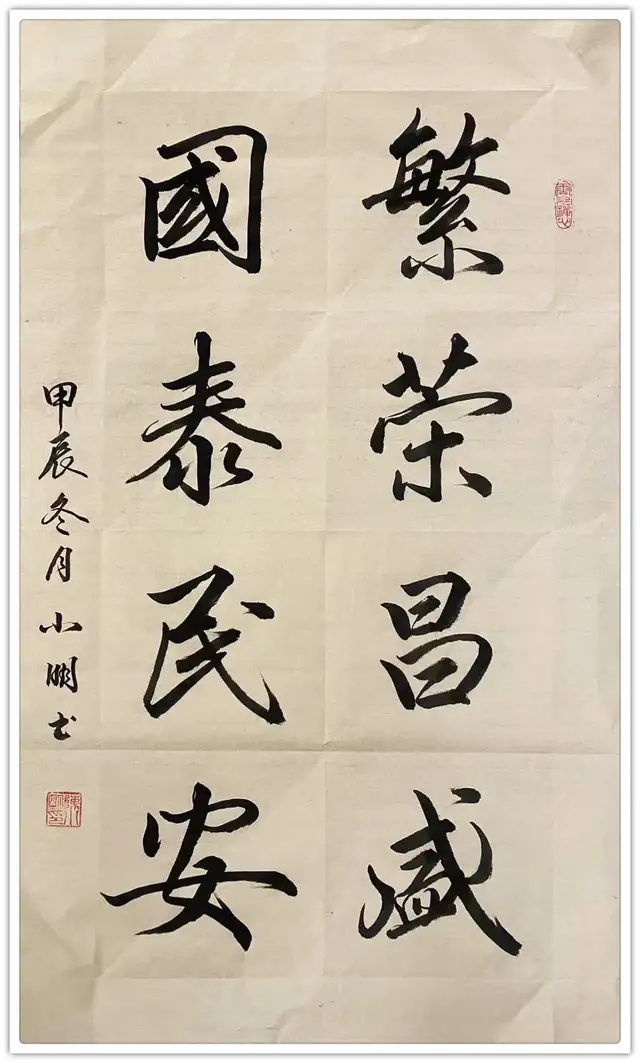 繁荣昌盛
國泰民安
甲辰冬月小明书